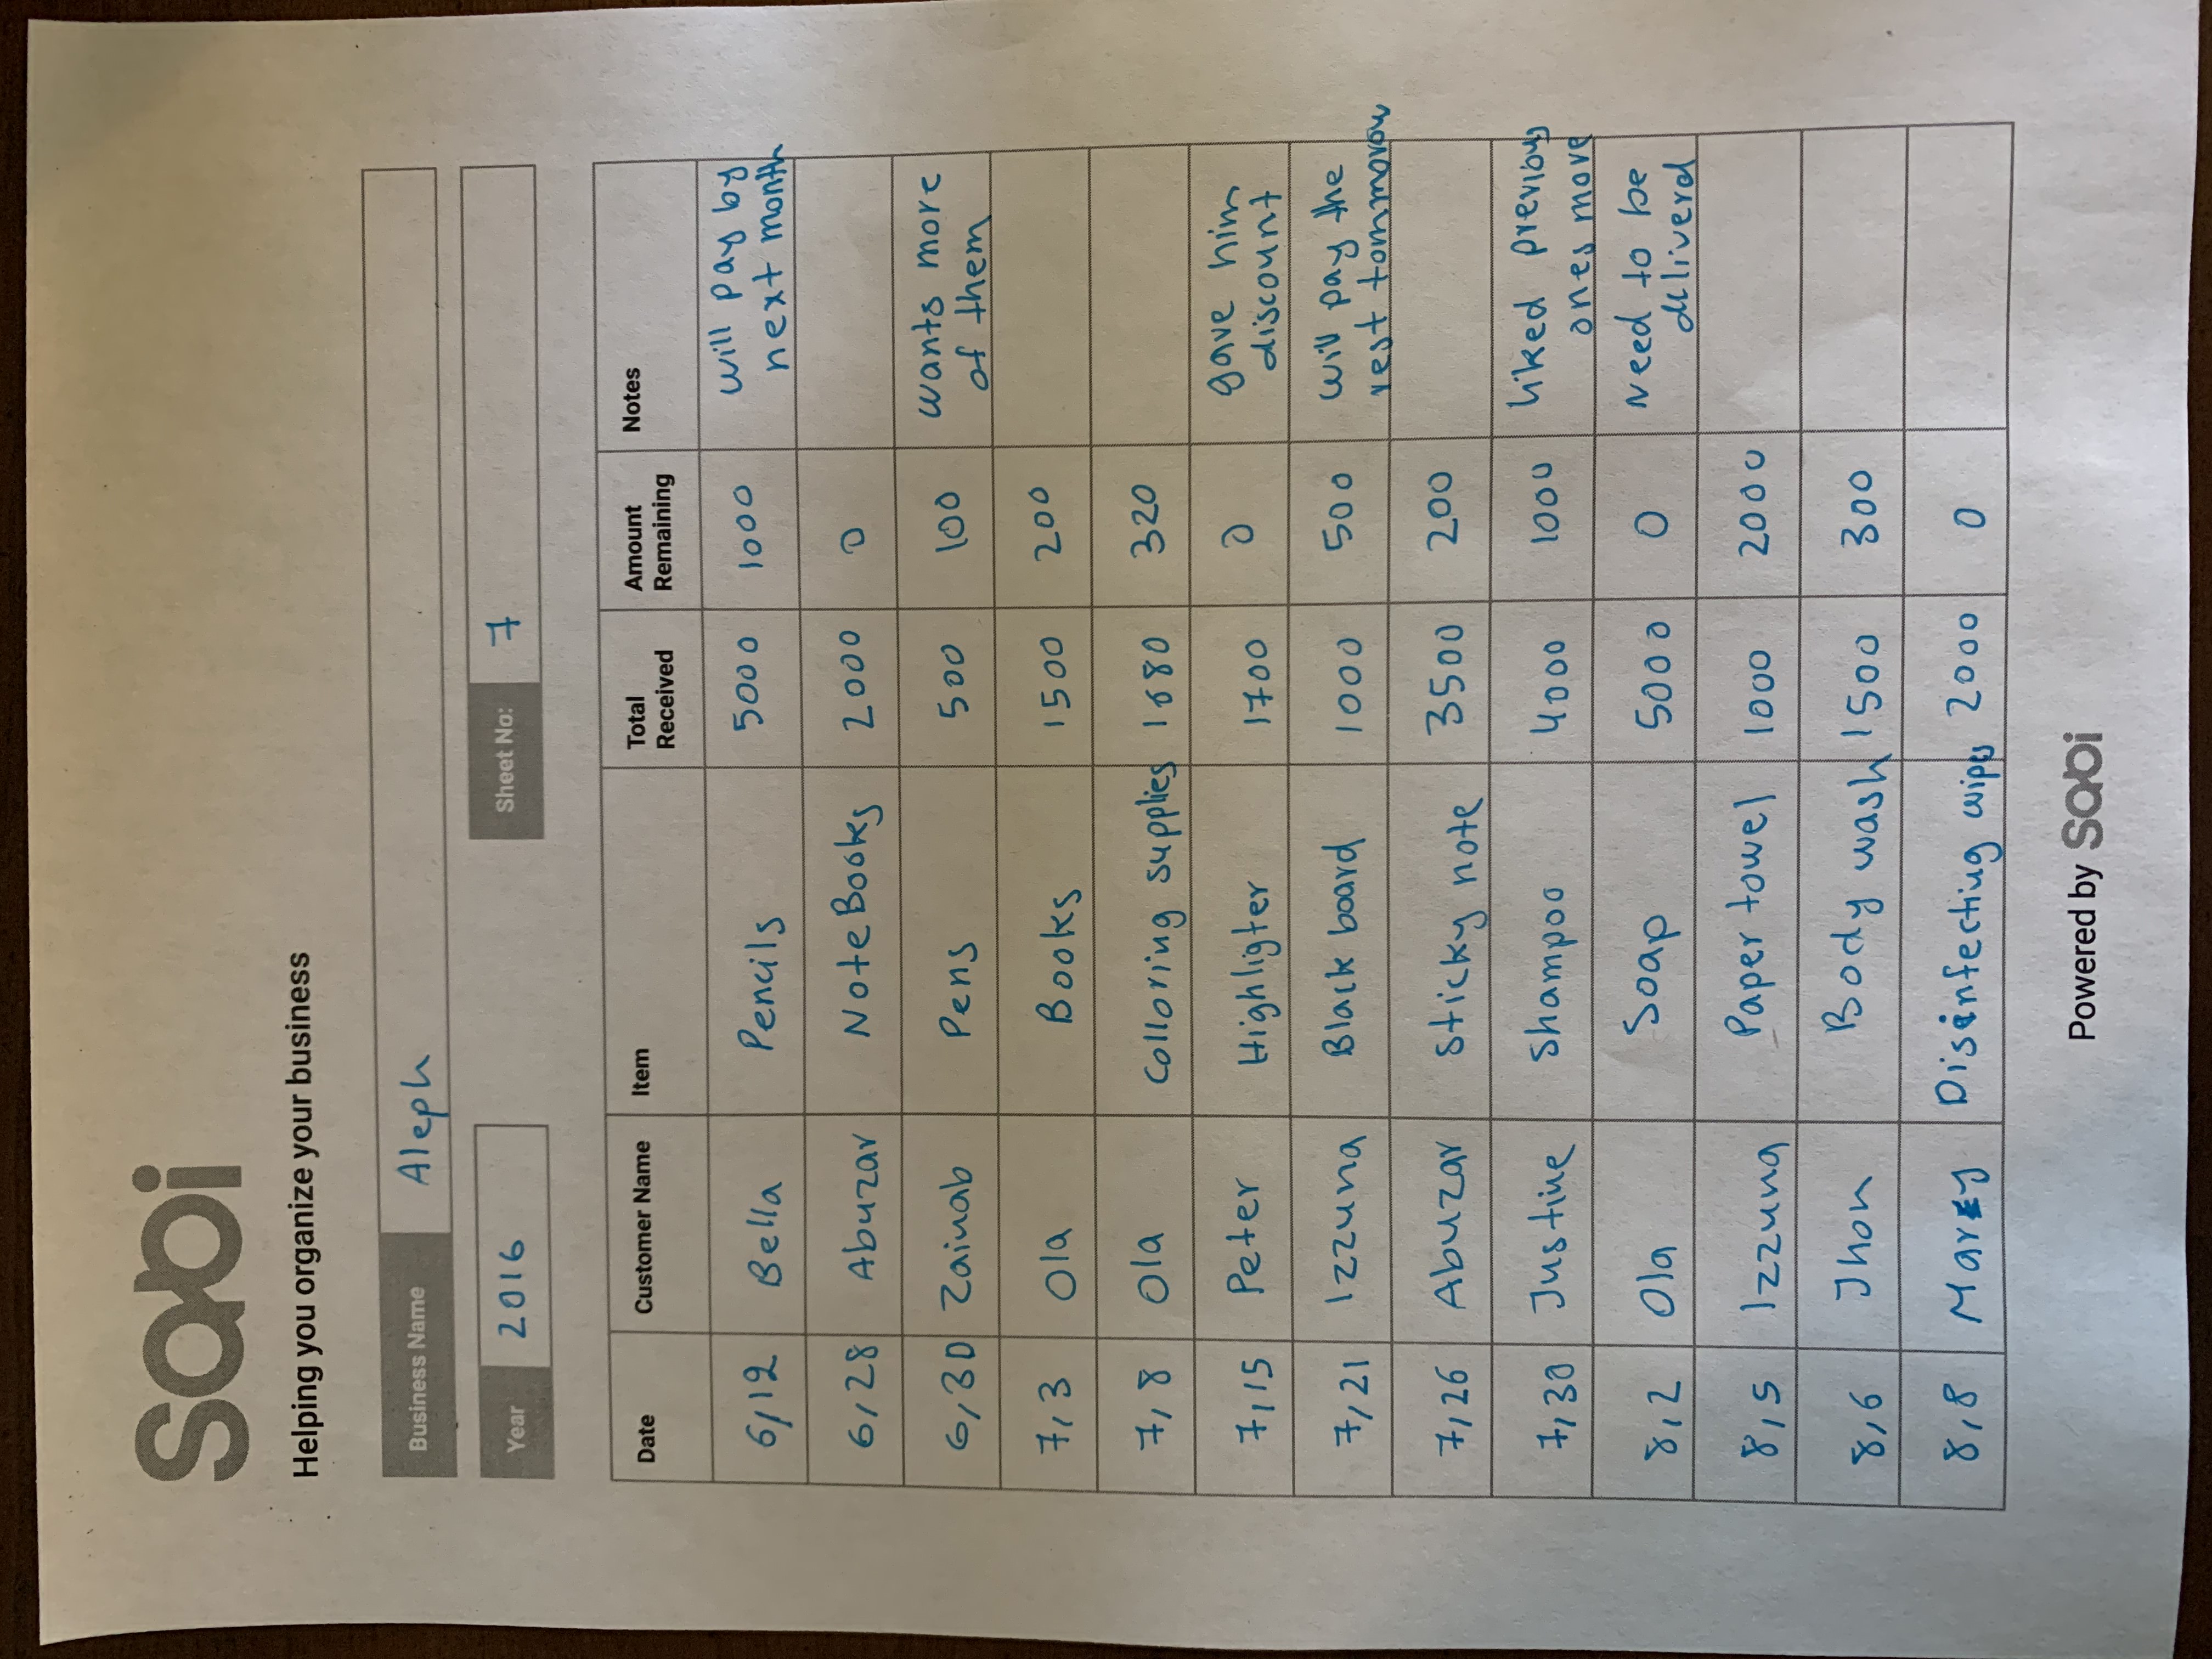 Sabi
Helping you organize your business
Business Name Aleph
Year 2016 Sheet No: 7
Date Customer Name Item Total Received Amount Remaining Notes
6/12 Bella Pencils 5000 1000 will pay by next month
6/28 Abuzar NoteBooks 2000 0
6/30 Zainab Pens 500 100 wants more of them
7/3 Ola Books 1500 200
7/8 Ola Colloring supplies 1680 320
7/15 Peter Highligter 1700 0 gave him discount
7/21 Izzuna Black board 1000 500 will pay the rest tommorow
7/26 Abuzar Sticky note 3500 200
7/30 Justine Shampoo 4000 1000 liked previous ones more
8/2 Ola Soap 5000 0 Need to be deliverd
8/5 Izzuna Paper towel 1000 2000
8/6 Jhon Body wash 1500 300
8/8 Disinfecting wipes 2000 0
Powered by Sabi